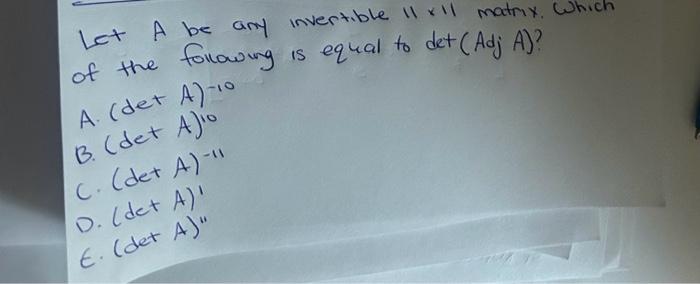 Let A be any invertible 11x11 matrix. Which
of the following is equal to det(Adj A)?
A. (det A)⁻¹⁰
B. (det A)¹⁰
C. (det A)⁻¹¹
D. (det A)¹
E. (det A)¹¹